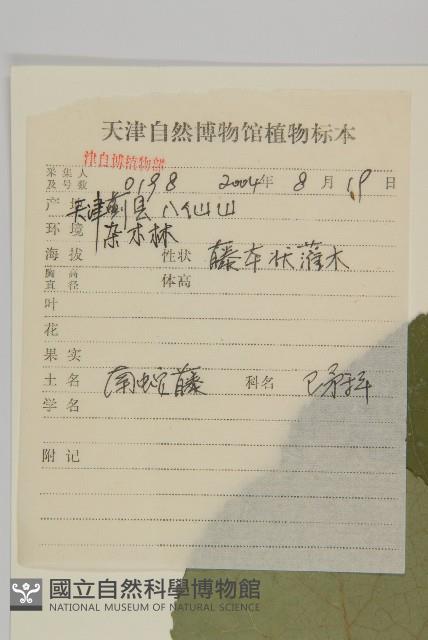 天津自然博物馆植物标本
津自博植物部
采集人及号数 0198 2004年 8月 19日
产地 天津蓟县八仙山
环境 杂木林
海拔 性状 藤本状灌木
胸高直径 体高
叶
花
果实
土名 南蛇藤 科名 卫矛科
学名
附记
國立自然科學博物館
NATIONAL MUSEUM OF NATURAL SCIENCE